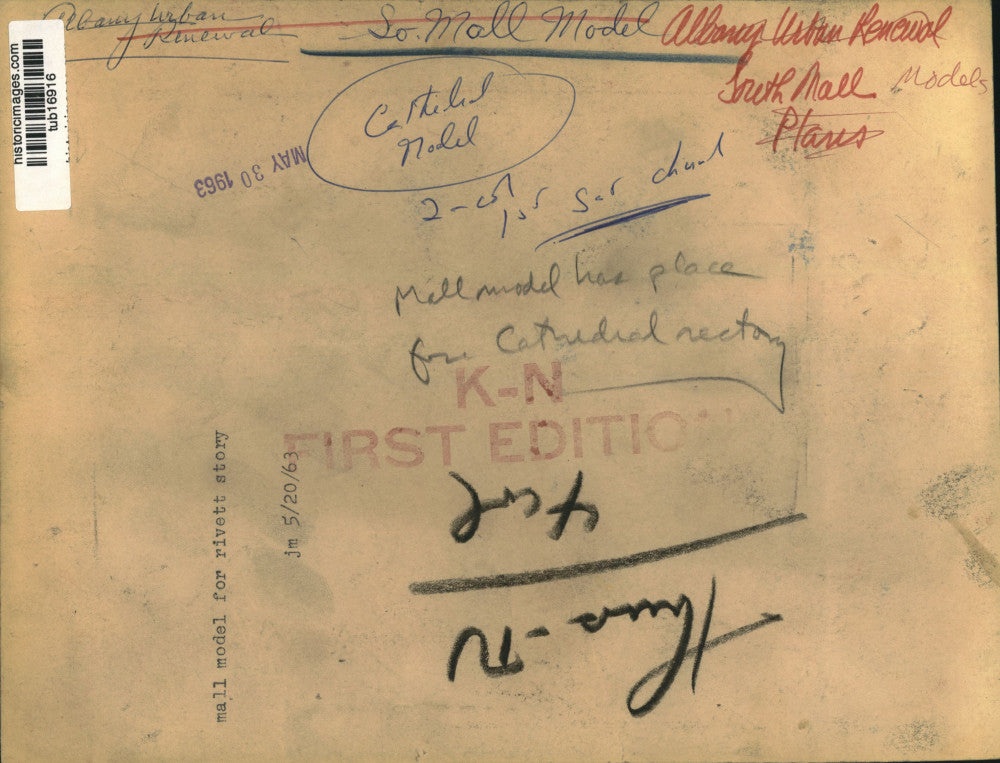 Albany Urban
Renewal
So. Mall Model
Albany Urban Renewal
South Mall Models
Plans
historicimages.com
tub16916
Cathedral
Model
MAY 30 1963
2-col
1st Sat church
Mall model has place
for Cathedral rectory
K-N
FIRST EDITION
mall model for rivett story
jm 5/20/63
4 col
Thurs - N